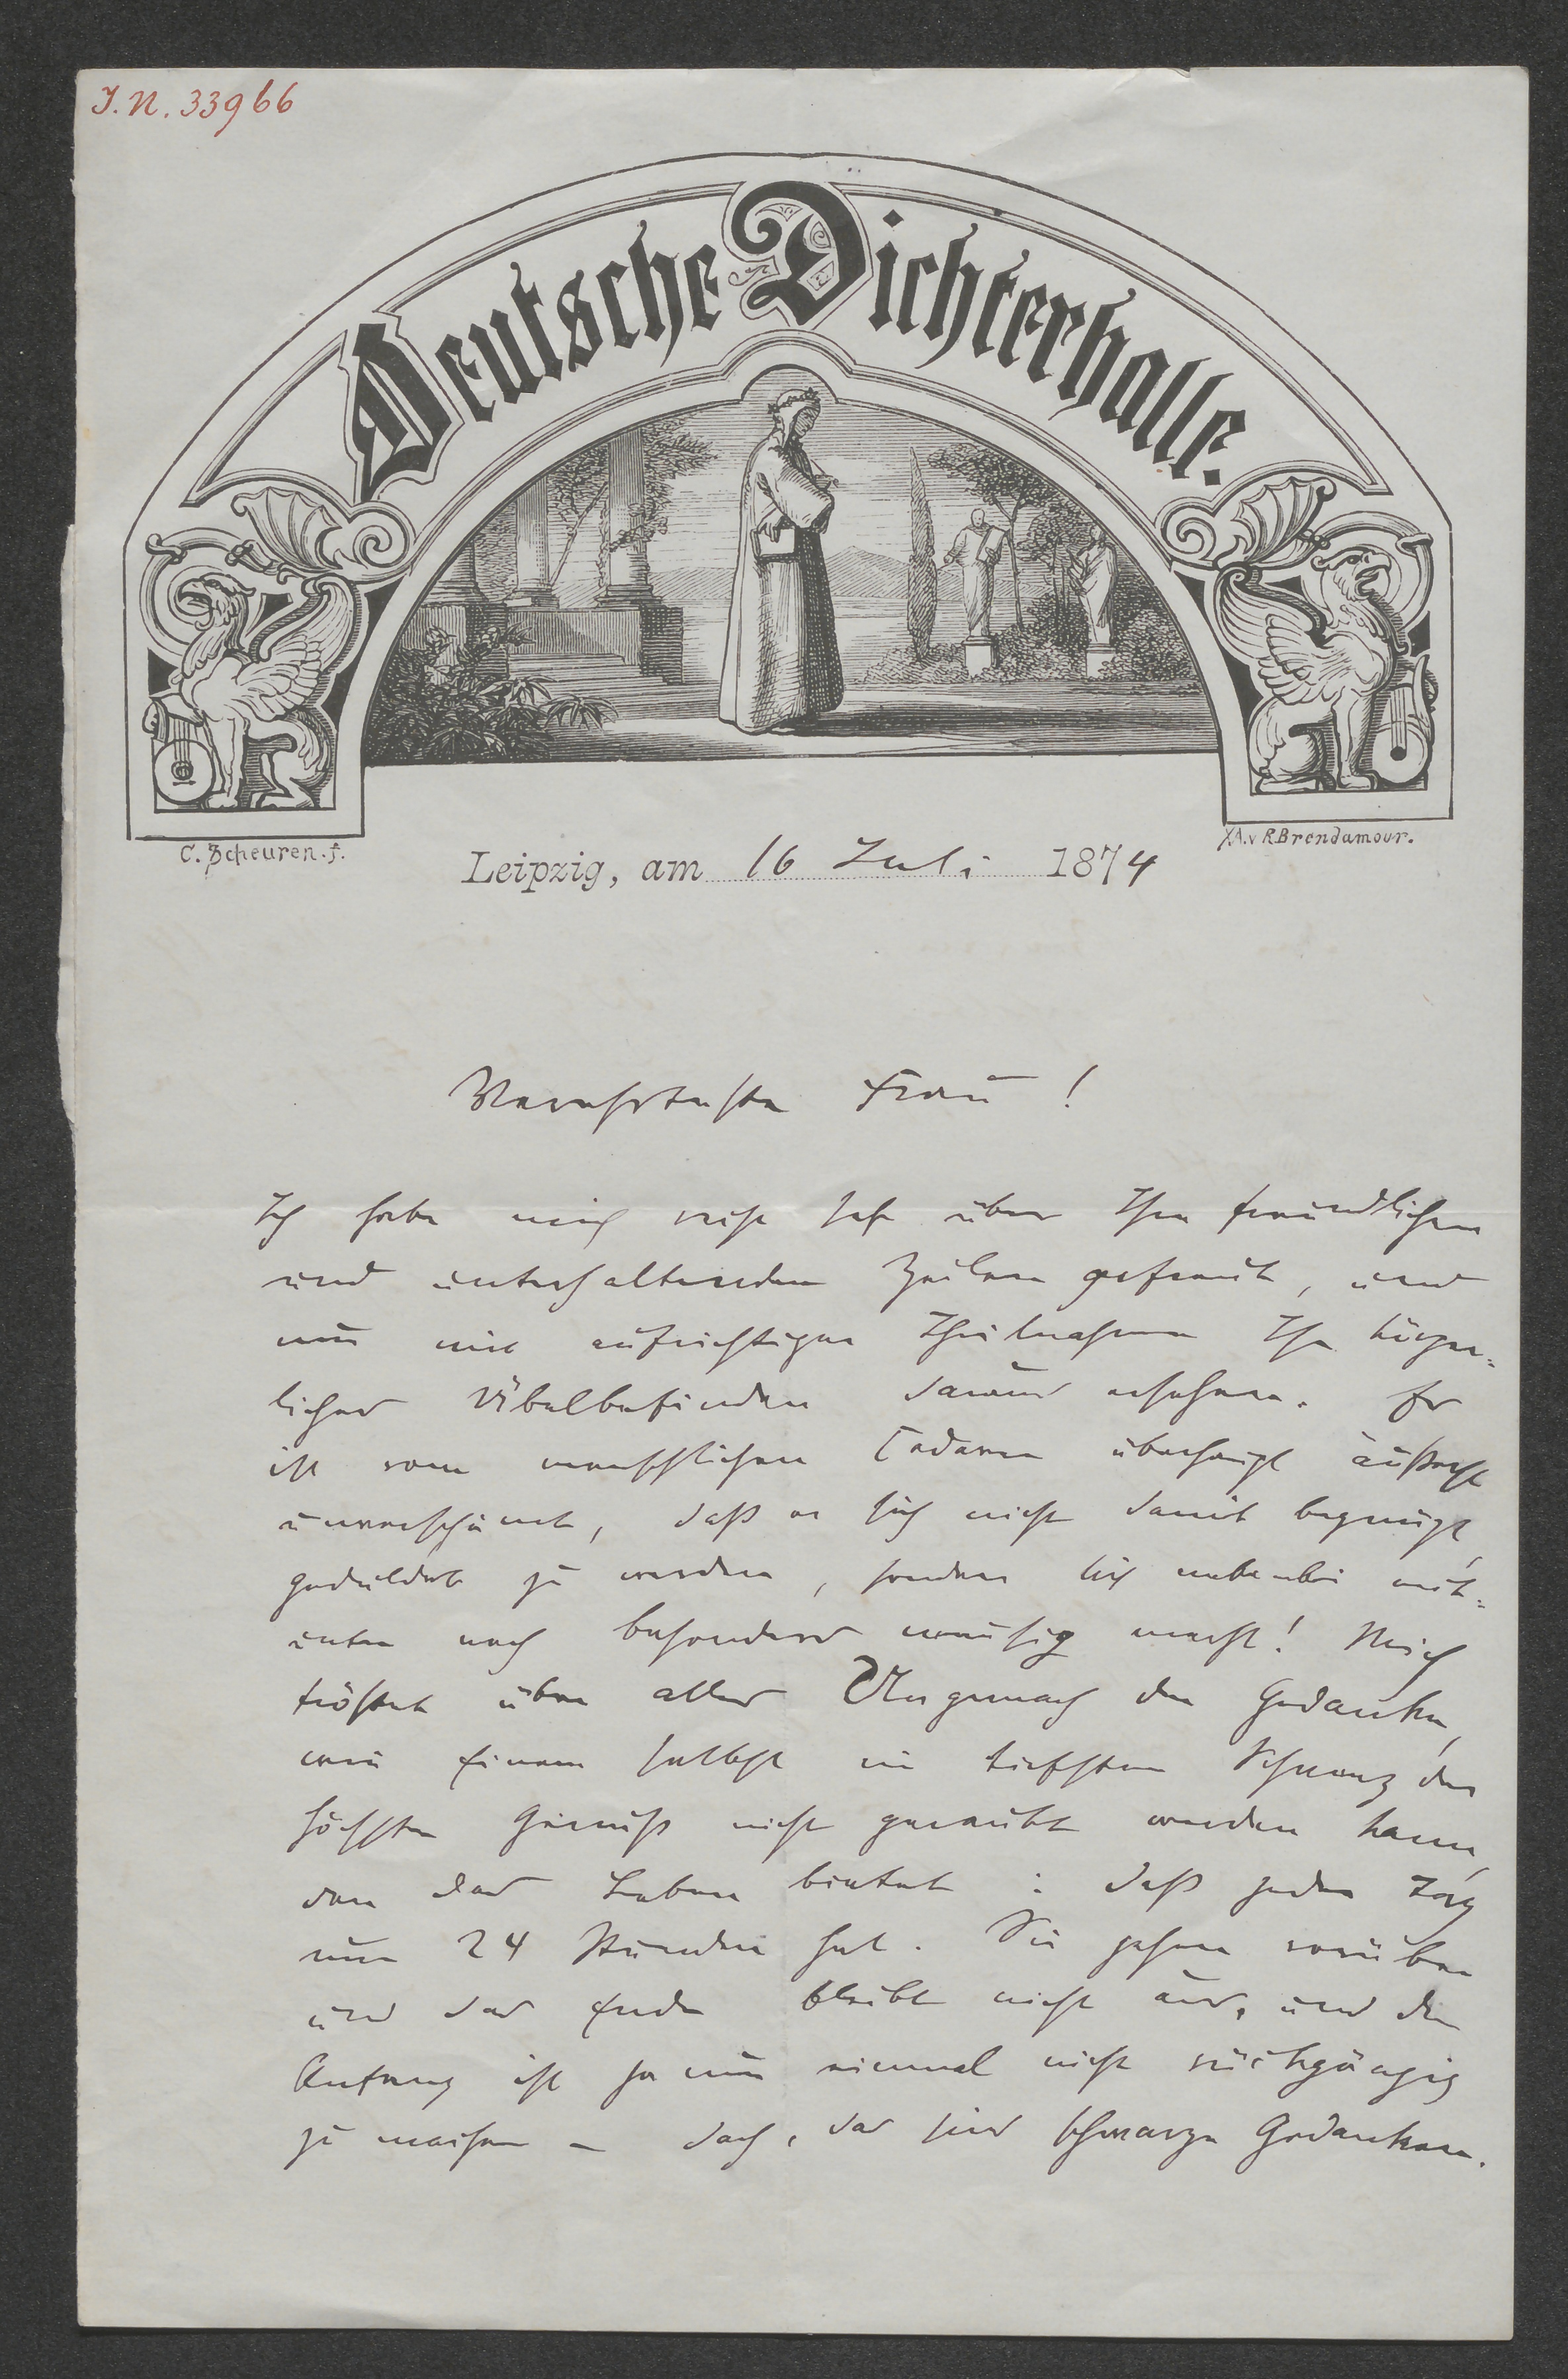 I. N. 33966
Deutsche Dichterhalle.
C. Scheuren. f.
X.A.v R.Brendamour.
Leipzig, am 16 Juli 1874
Verehrteste Frau!
Ich habe mich recht sehr über Ihre freundlichen
und unterhaltenden Zeilen gefreut, und
nur mit aufrichtiger Theilnahme Ihr körper=
liches Übelbefinden daraus ersehen. Es
ist vom menschlichen Cadaver überhaupt äußerst
unverschämt, daß er sich nicht damit begnügt,
geduldet zu werden, sondern sich nebenbei mit=
unter noch besonders mausig macht! Mich
tröstet über alles Ungemach der Gedanke,
wie Einem selbst im tiefsten Schmerz der
höchste Genuß nicht geraubt werden kann,
den das Leben bietet: daß jeder Tag
nur 24 Stunden hat. Sie gehen vorüber
und das Ende bleibt nicht aus, und der
Anfang ist ja nun einmal nicht rückgängig
zu machen – doch, das sind schwarze Gedanken.